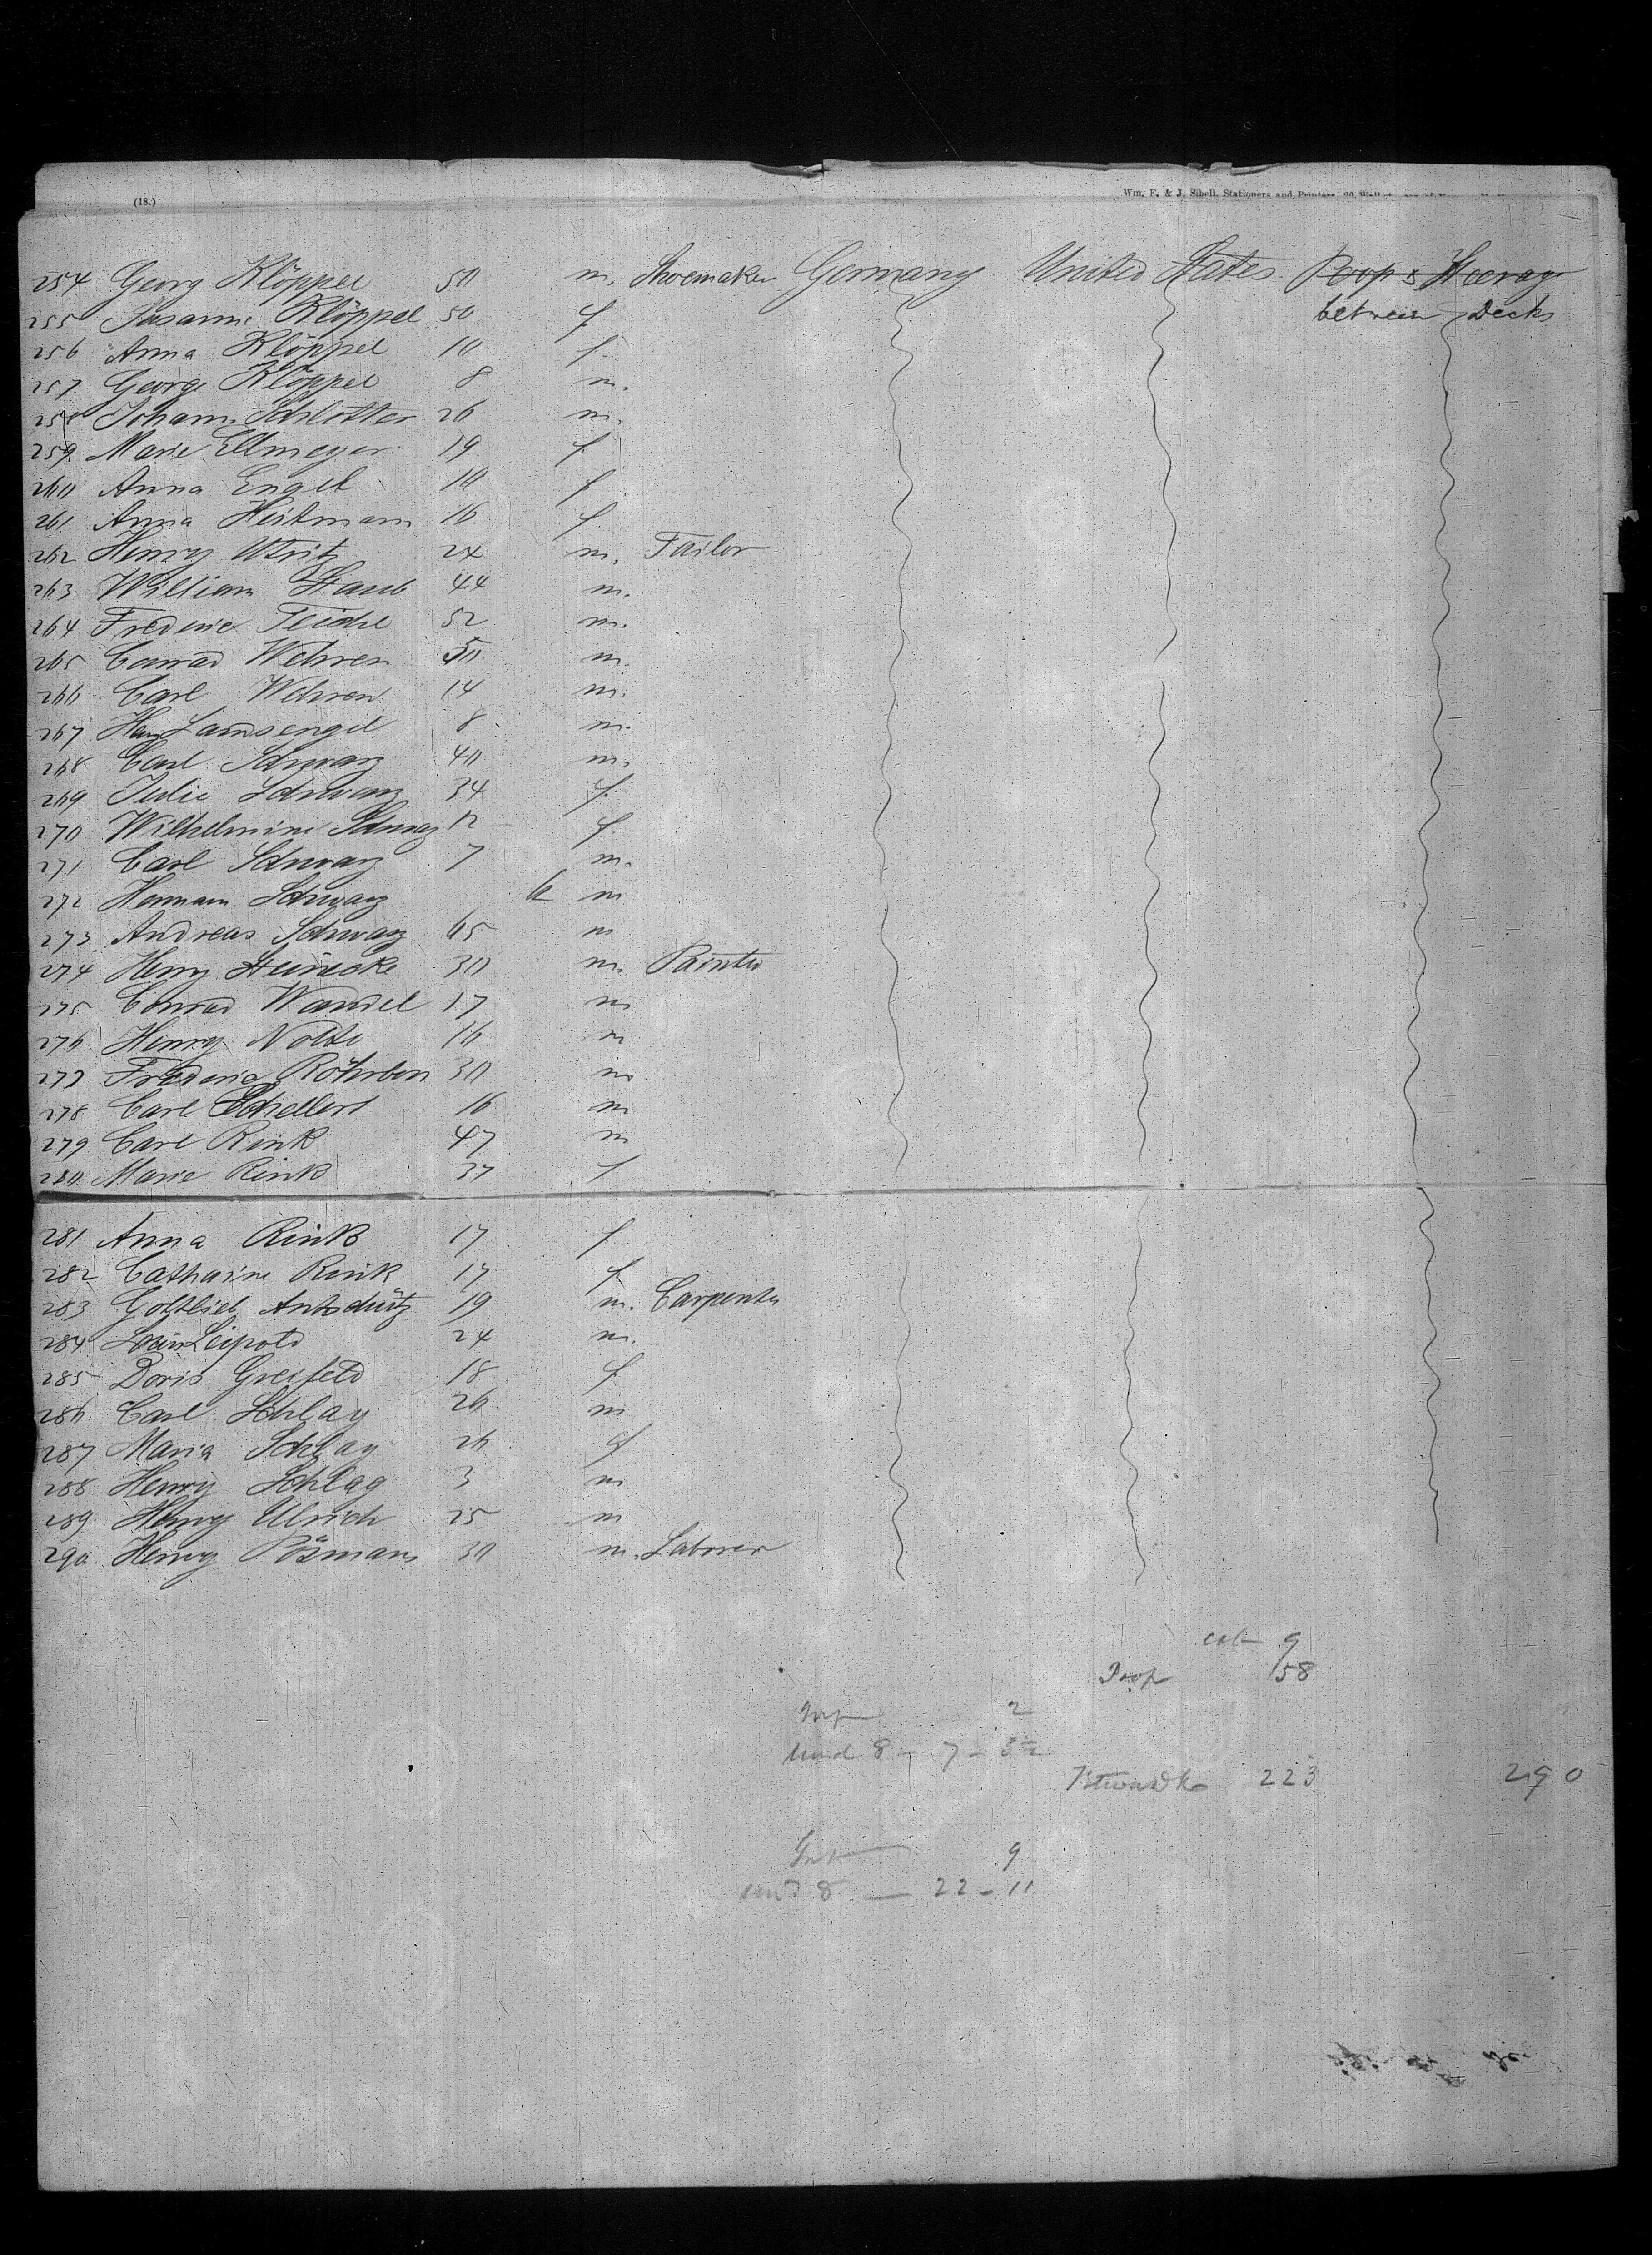 (18.)
Wm. F. & J. Sibell, Stationers and Printers,
254 Georg Klöppel 50 m. Shoemaker Germany United States Poop & Steerage
255 Susanne Klöppel 50 f. between Decks
256 Anna Klöppel 10 f.
257 George Klöppel 8 m.
258 Johann Schlotter 26 m.
259 Marie Ellmeyer 19 f.
260 Anna Engel 10 f.
261 Anna Heitmann 16 f.
262 Henry 24 m. Tailor
263 William Staub 44 m.
264 Frederic Teiche 52 m.
265 Conrad Wehren 50 m.
266 Carl Wehren 14 m.
267 Landsengel 8 m.
268 Carl Schwarz 40 m.
269 Julie Schwarz 34 f.
270 Wilhelmine Schwarz 12 f.
271 Carl Schwarz 7 m.
272 Hermann Schwarz 6 m
273 Andreas Schwarz 65 m
274 Henry Steinecke 30 m. Painter
275 Conrad Wandel 17 m
276 Henry Nolte 16 m
277 Frederic Röhrben 30 m
278 Carl Schellert 16 m
279 Carl Rink 47 m
280 Marie Rink 37 f
281 Anna Rink 17 f
282 Catharine Rink 17 f.
283 Gottlieb 19 m. Carpenter
284 Louis Leipold 24 m.
285 Doris Greifeld 18 f
286 Carl Schlag 26 m
287 Maria Schlag 26 f
288 Henry Schlag 3 m
289 Henry Ulrich 25 m
290 Henry Pösmann 30 m. Laborer
cab 9
Poop 58
Inf 2
und 8 - 7 - 3½
Btwndks 223 290
Inf 9
und 8 — 22 - 11